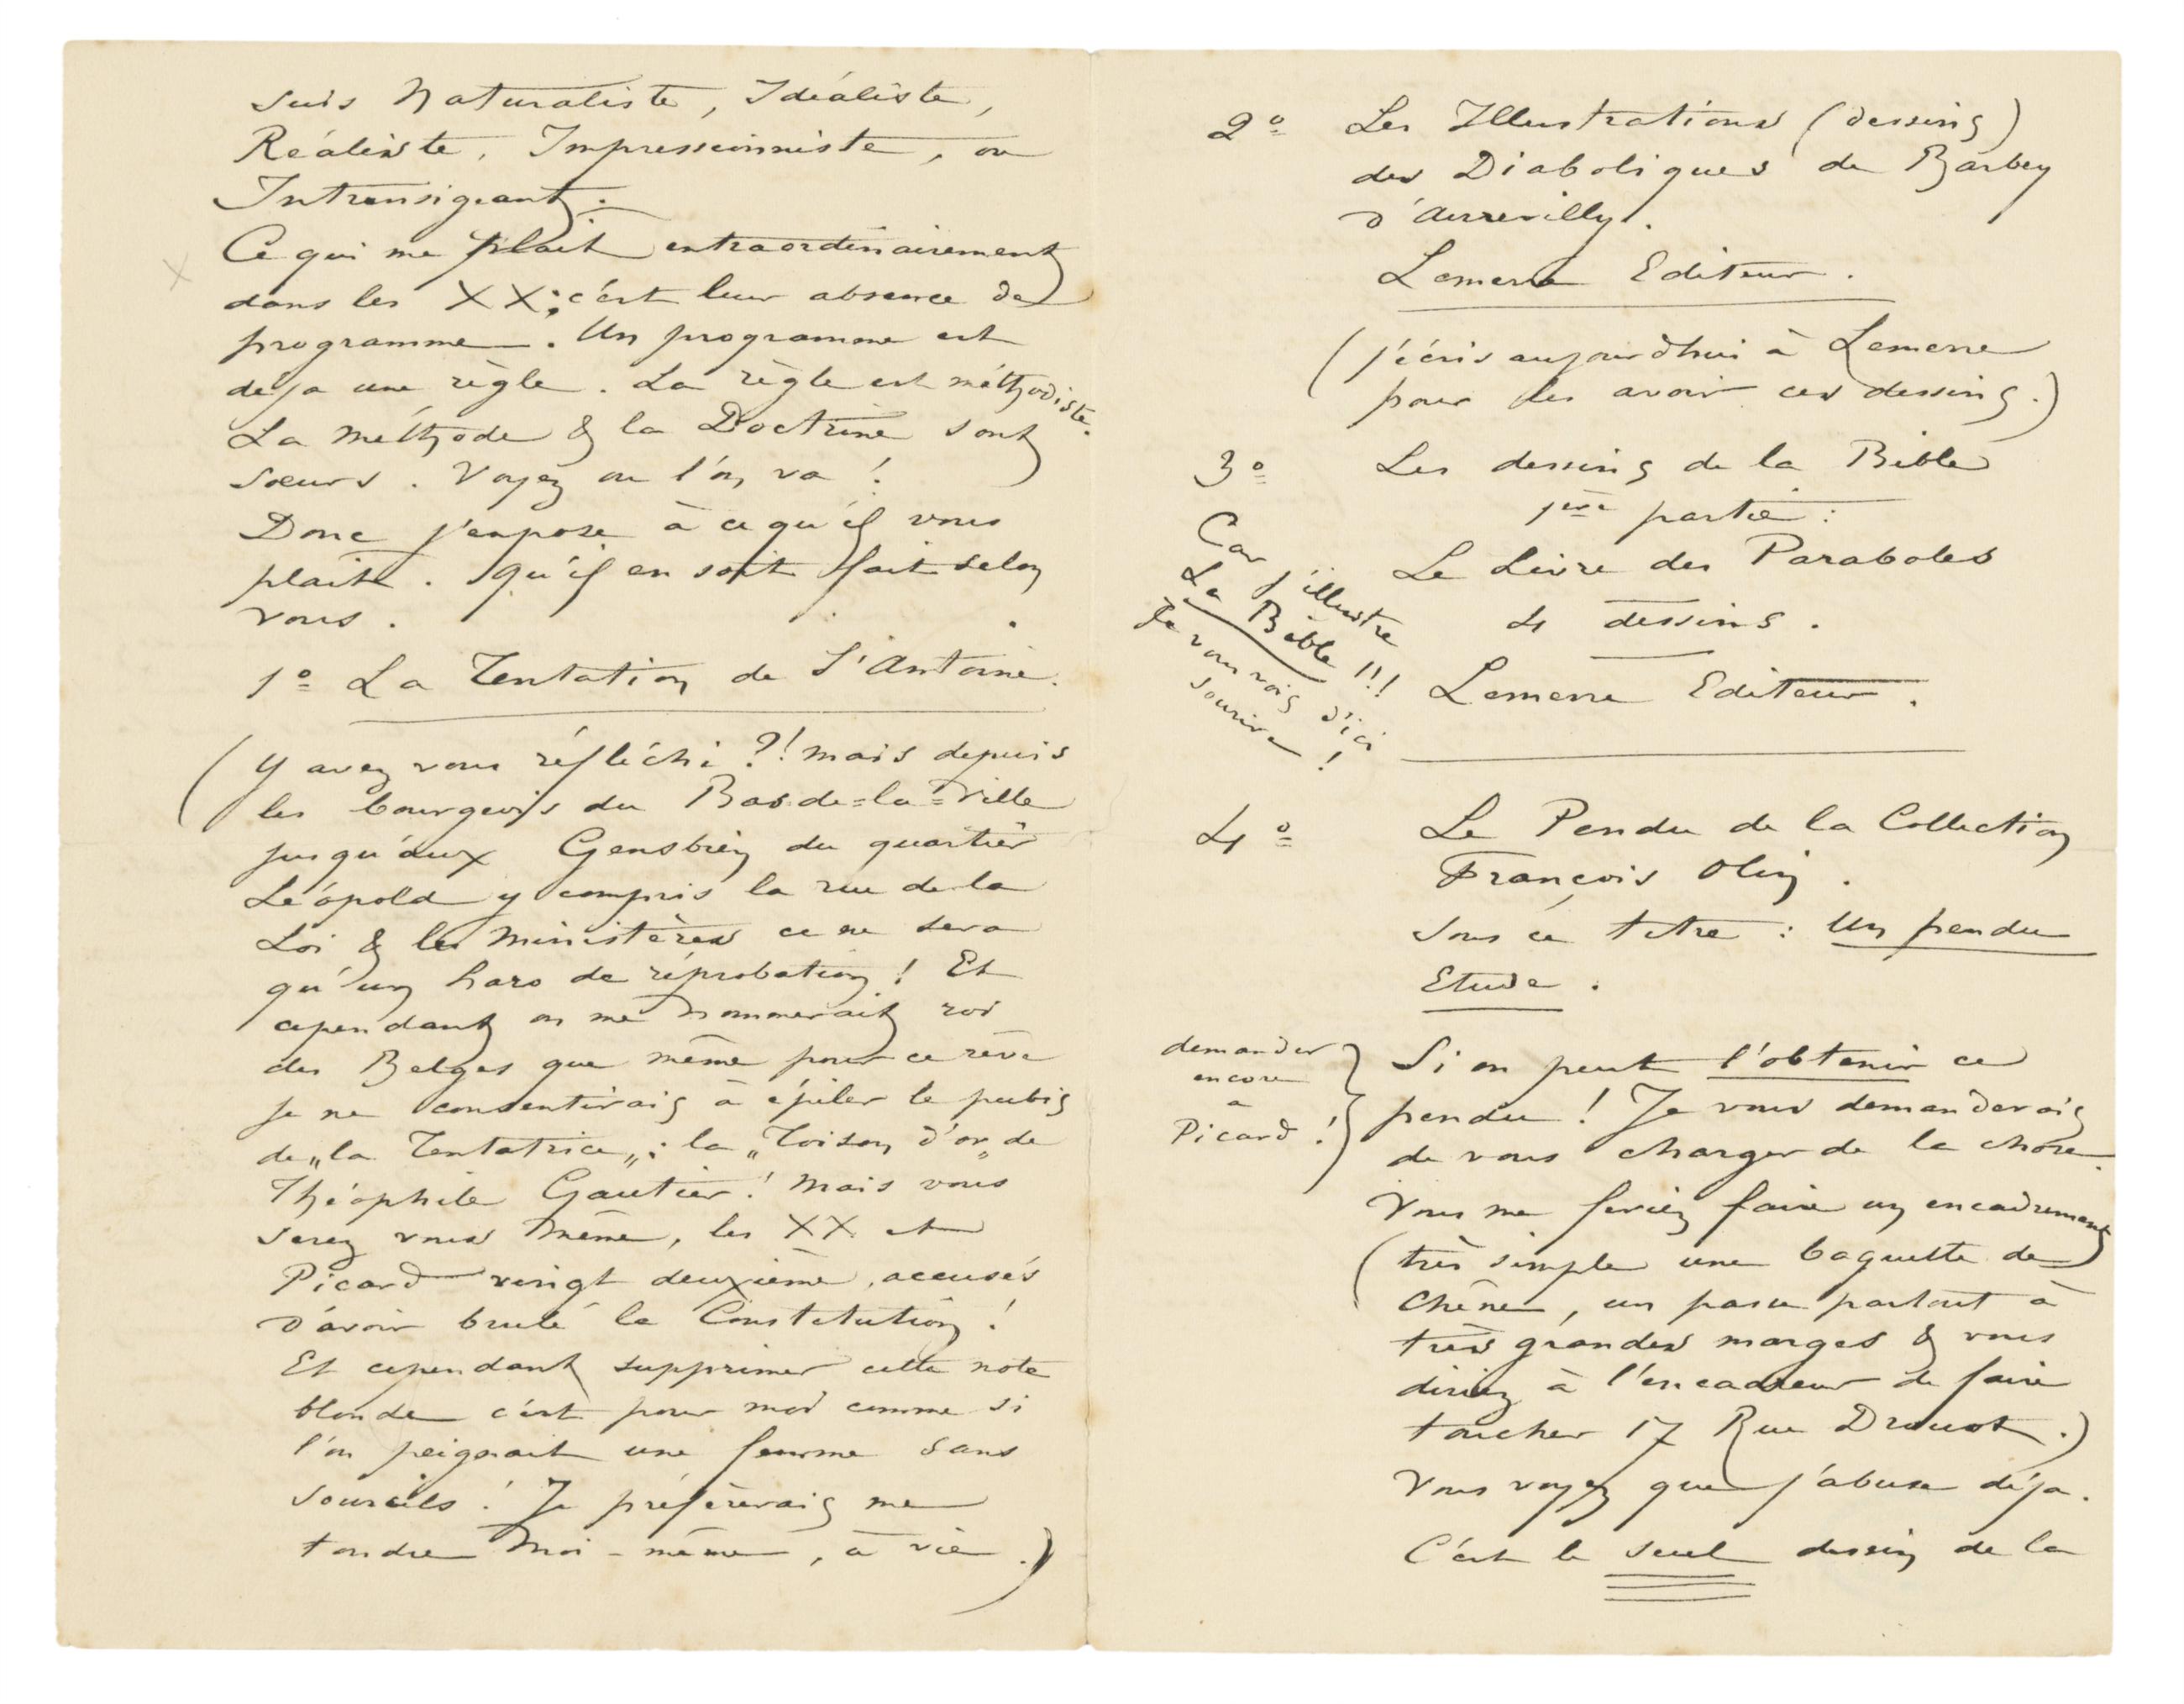 suis Naturaliste, Idéaliste,
Réaliste, Impressionniste, ou
Intransigeant.
Ce qui me plait extraordinairement
dans les XX; c'est leur absence de
programme. Un programme est
déja une règle. La règle est méthodiste.
La méthode & la Doctrine sont
sœurs. Voyez ou l'on va!
Donc j'expose à ce qu'il vous
plaît. Qu'il en soit fait selon
vous.
1º La Tentation de St Antoine.
(Y avez vous réfléchi?! mais depuis
les bourgeois du Bas-de-la-Ville
jusqu'aux Gensbien du quartier
Léopold y compris la rue de la
Loi & les Ministères ce ne sera
qu'un haro de réprobation! Et
cependant on me nommerait roi
des Belges que même pour ce rêve
je ne consentirais à épiler le pubis
de „la Tentatrice„; la „Toison d'or„ de
Théophile Gautier! Mais vous
serez vous même, les XX et
Picard vingt deuxième, accusés
d'avoir brulé la Constitution!
Et cependant supprimer cette note
blonde c'est pour moi comme si
l'on peignait une femme sans
sourcils! Je préfèrerais me
tondre moi-même, à vie.)
2º Les Illustrations (dessins)
des Diaboliques de Barbey
d'Aurevilly.
Lemerre Editeur.
(j'écris aujourdhui à Lemerre
pour les avoir ces dessins.)
3º Les dessins de la Bible
1ère partie:
Le Livre des Paraboles
4 dessins.
Lemerre Editeur.
Car j'illustre
La Bible!!!
Je vous vois d'ici
sourire!
4º Le Pendu de la Collection
François Olin.
sous ce titre: Un pendu
Etude.
demander
encore
a
Picard!
Si on peut l'obtenir ce
pendu! Je vous demanderais
de vous charger de la chose.
Vous me feriez faire un encadrement
(très simple une baguette de
Chêne, un passe partout à
très grandes marges & vous
diriez à l'encadreur de faire
toucher 17 Rue Drouot.)
Vous voyez que j'abuse déja.
C'est le seul dessin de la